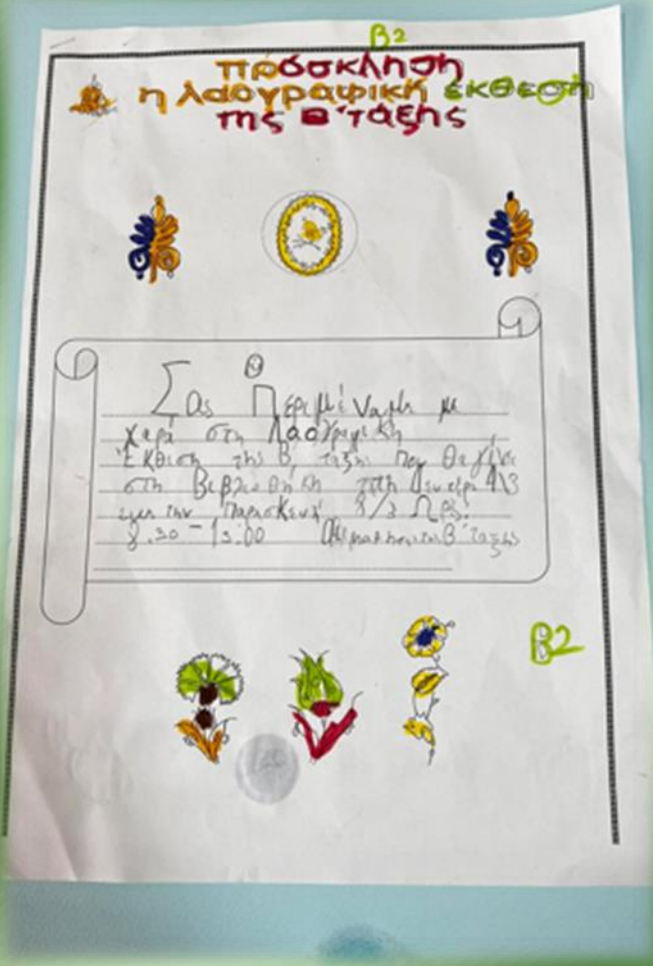 Β2
πρόσκληση
η λαογραφική έκθεση
της Β΄τάξης
Σας Περιμέναμε με
χαρά στη Λαογραφική
Έκθεση της Β΄ τάξης που θα γίνει
στη Βεβλιοθήκη Δευτέρα 4\3
την Παρασκευή 8/3 Ώρες:
8.30-13.00 της Β΄ τάξης
Β2